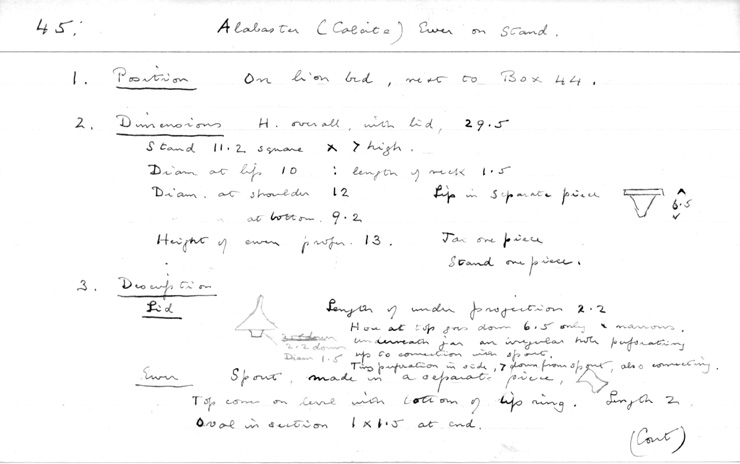 45. Alabaster (Calcite) Ewer on Stand.
1. Position On lion bed, next to Box 44.
2. Dimensions H. overall, with lid, 29.5
Stand 11.2 square x 7 high.
Diam at lip 10 : length of neck 1.5
Diam. at shoulder 12 Lip in separate piece 6.5
" at bottom. 9.2
Height of ewer proper. 13. Jar one piece
Stand one piece.
3. Description
Lid Length of under projection 2.2
2.2 down
Diam 1.5
Hole at top goes down 6.5 only & narrows.
underneath jar an irregular hole perforating
up to connection with spout.
This perforation in side, 7 down from spout, also connecting.
Ewer Spout, made in a separate piece,
Top comes on level with bottom of lip ring. Length 2.
Oval in section 1 x 1.5 at end.
(Cont)